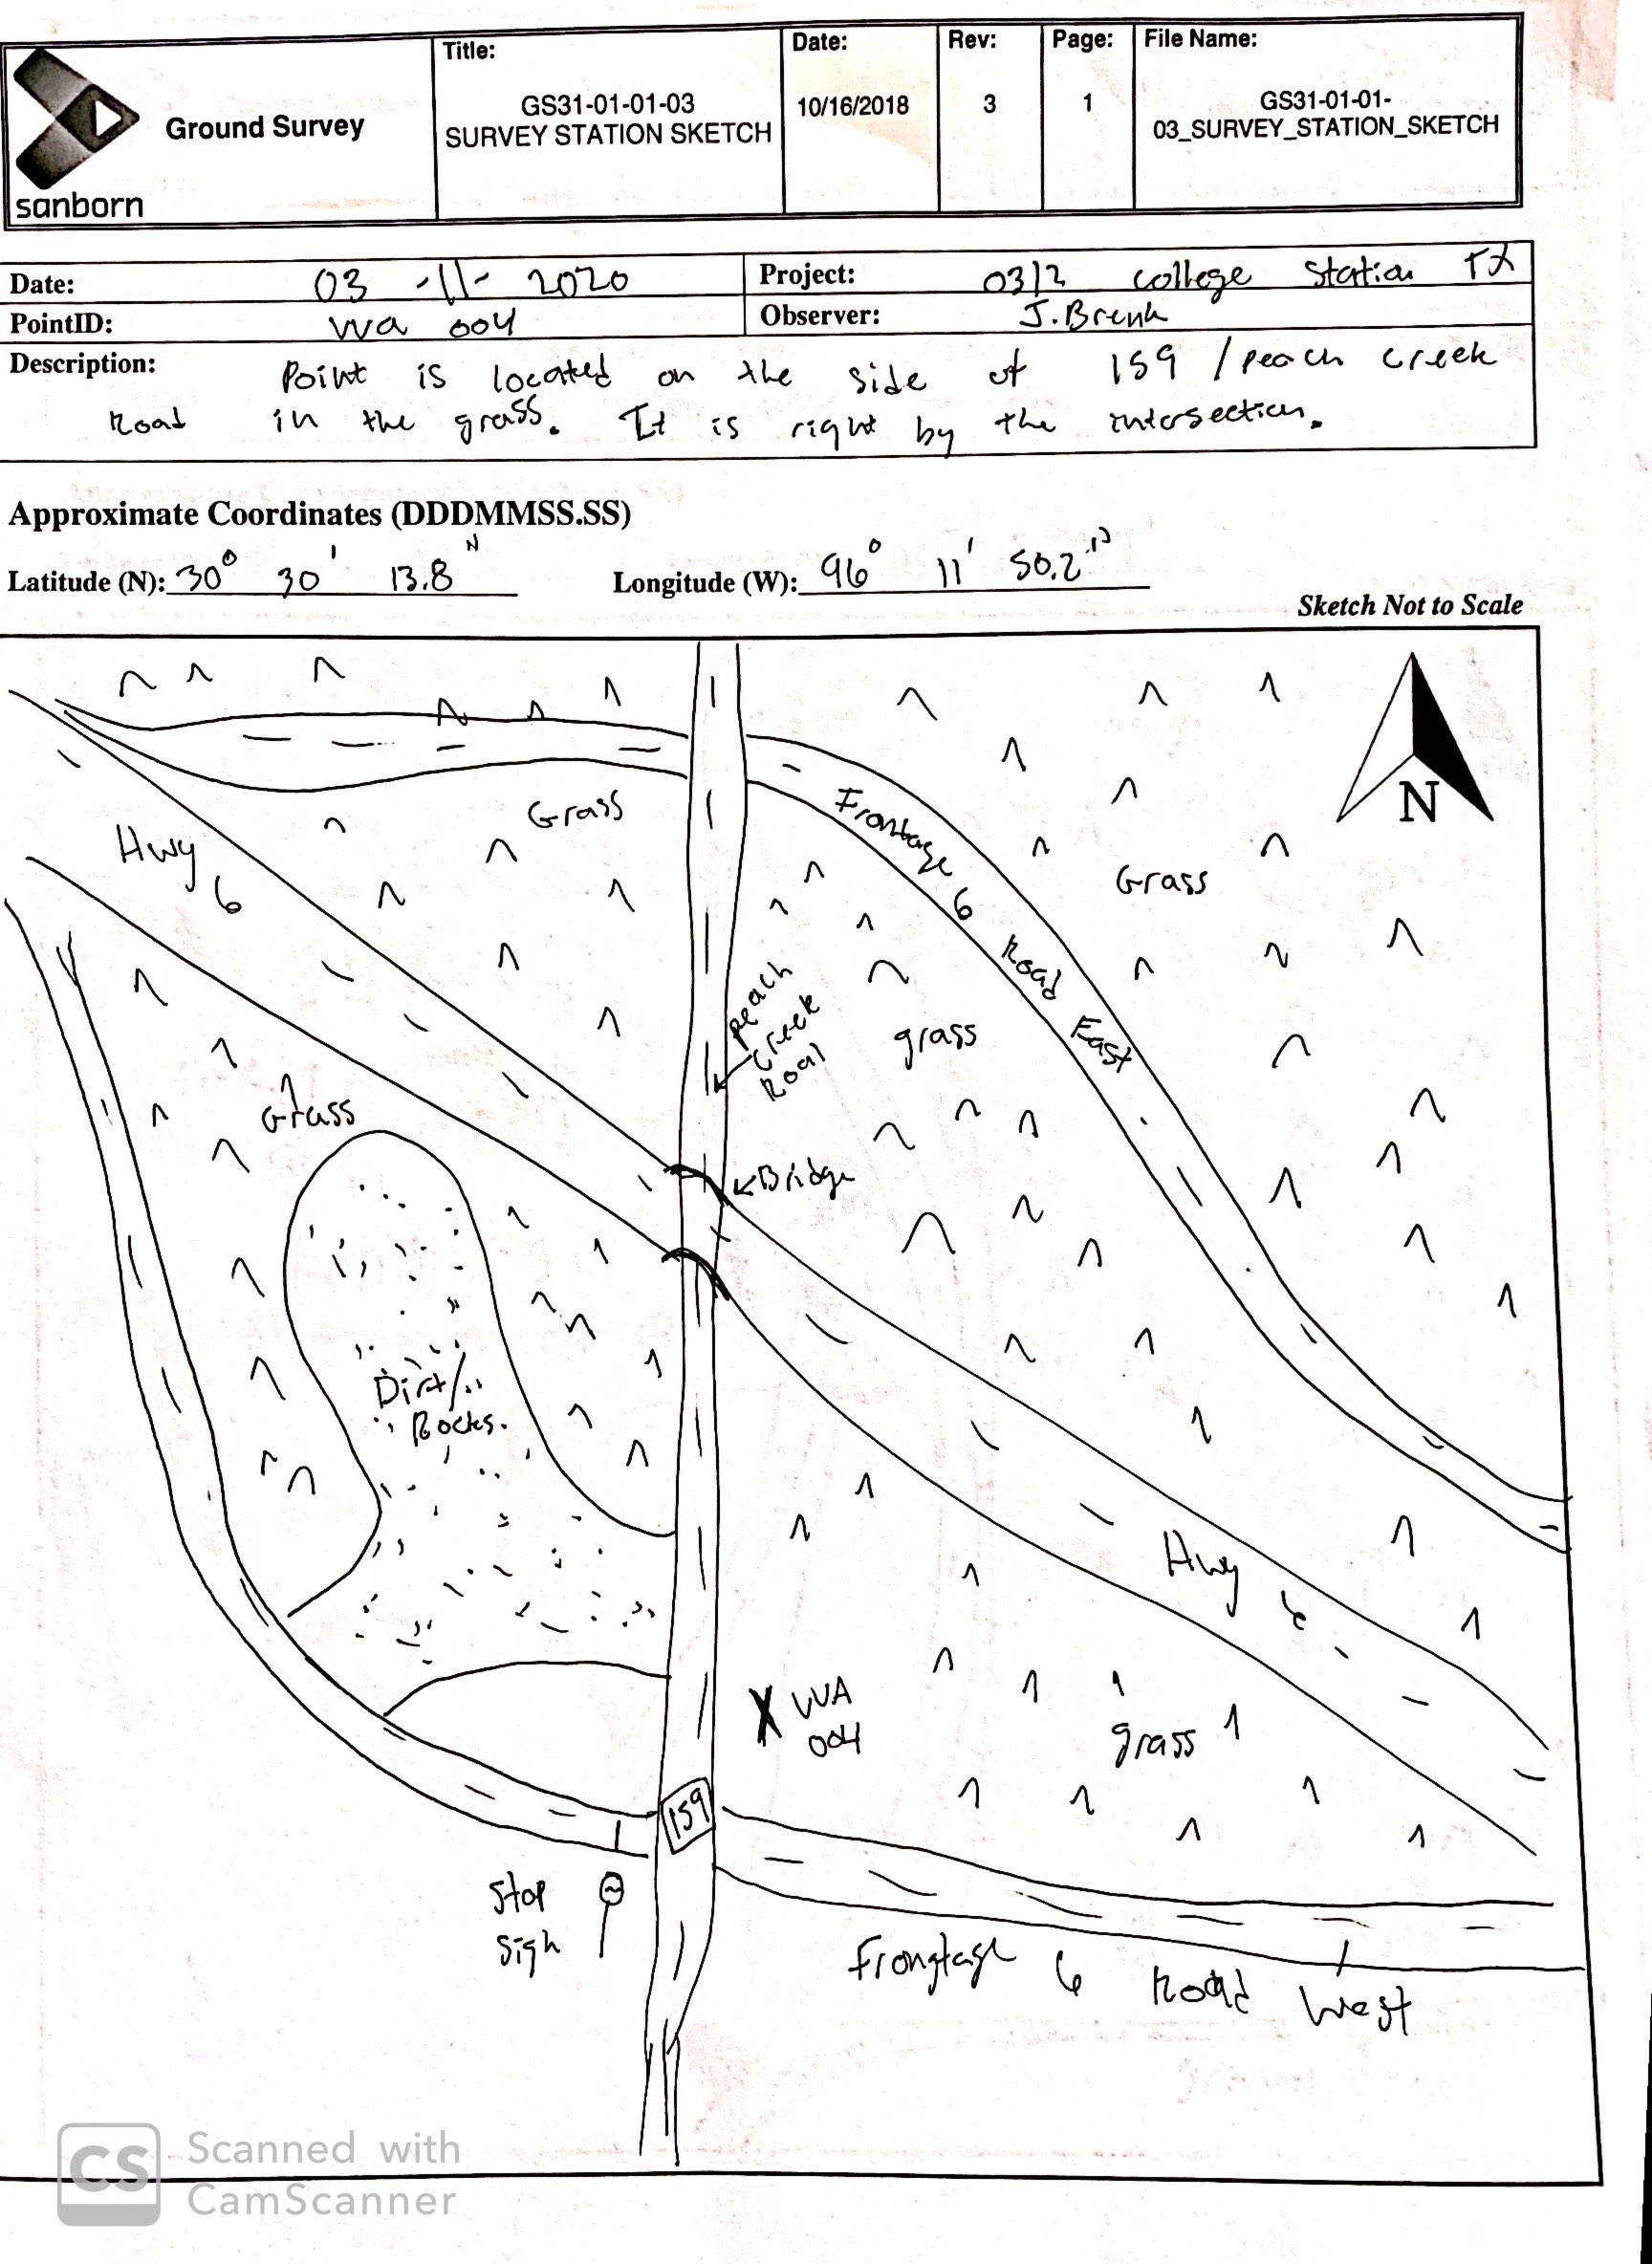 sanborn
Ground Survey
Title:
GS31-01-01-03
SURVEY STATION SKETCH
Date:
10/16/2018
Rev:
3
Page:
1
File Name:
GS31-01-01-
03_SURVEY_STATION_SKETCH
Date: 03-11-2020
Project: 0312 college Station TX
PointID: WA 004
Observer: J.Brenk
Description: Point is located on the side of 159 / peach creek
Road in the grass. It is right by the intersection.
Approximate Coordinates (DDDMMSS.SS)
Latitude (N): 30° 30' 13.8" Longitude (W): 96° 11' 50.2"
Sketch Not to Scale
N
Grass
Hwy
6
Frontage 6 Road East
Grass
peach
creek
Road
grass
Grass
Bridge
Dirt/
Rocks.
Hwy 6
WA
004
grass
159
Stop
Sigh
Frongtage 6 Road West
CS
Scanned with
CamScanner